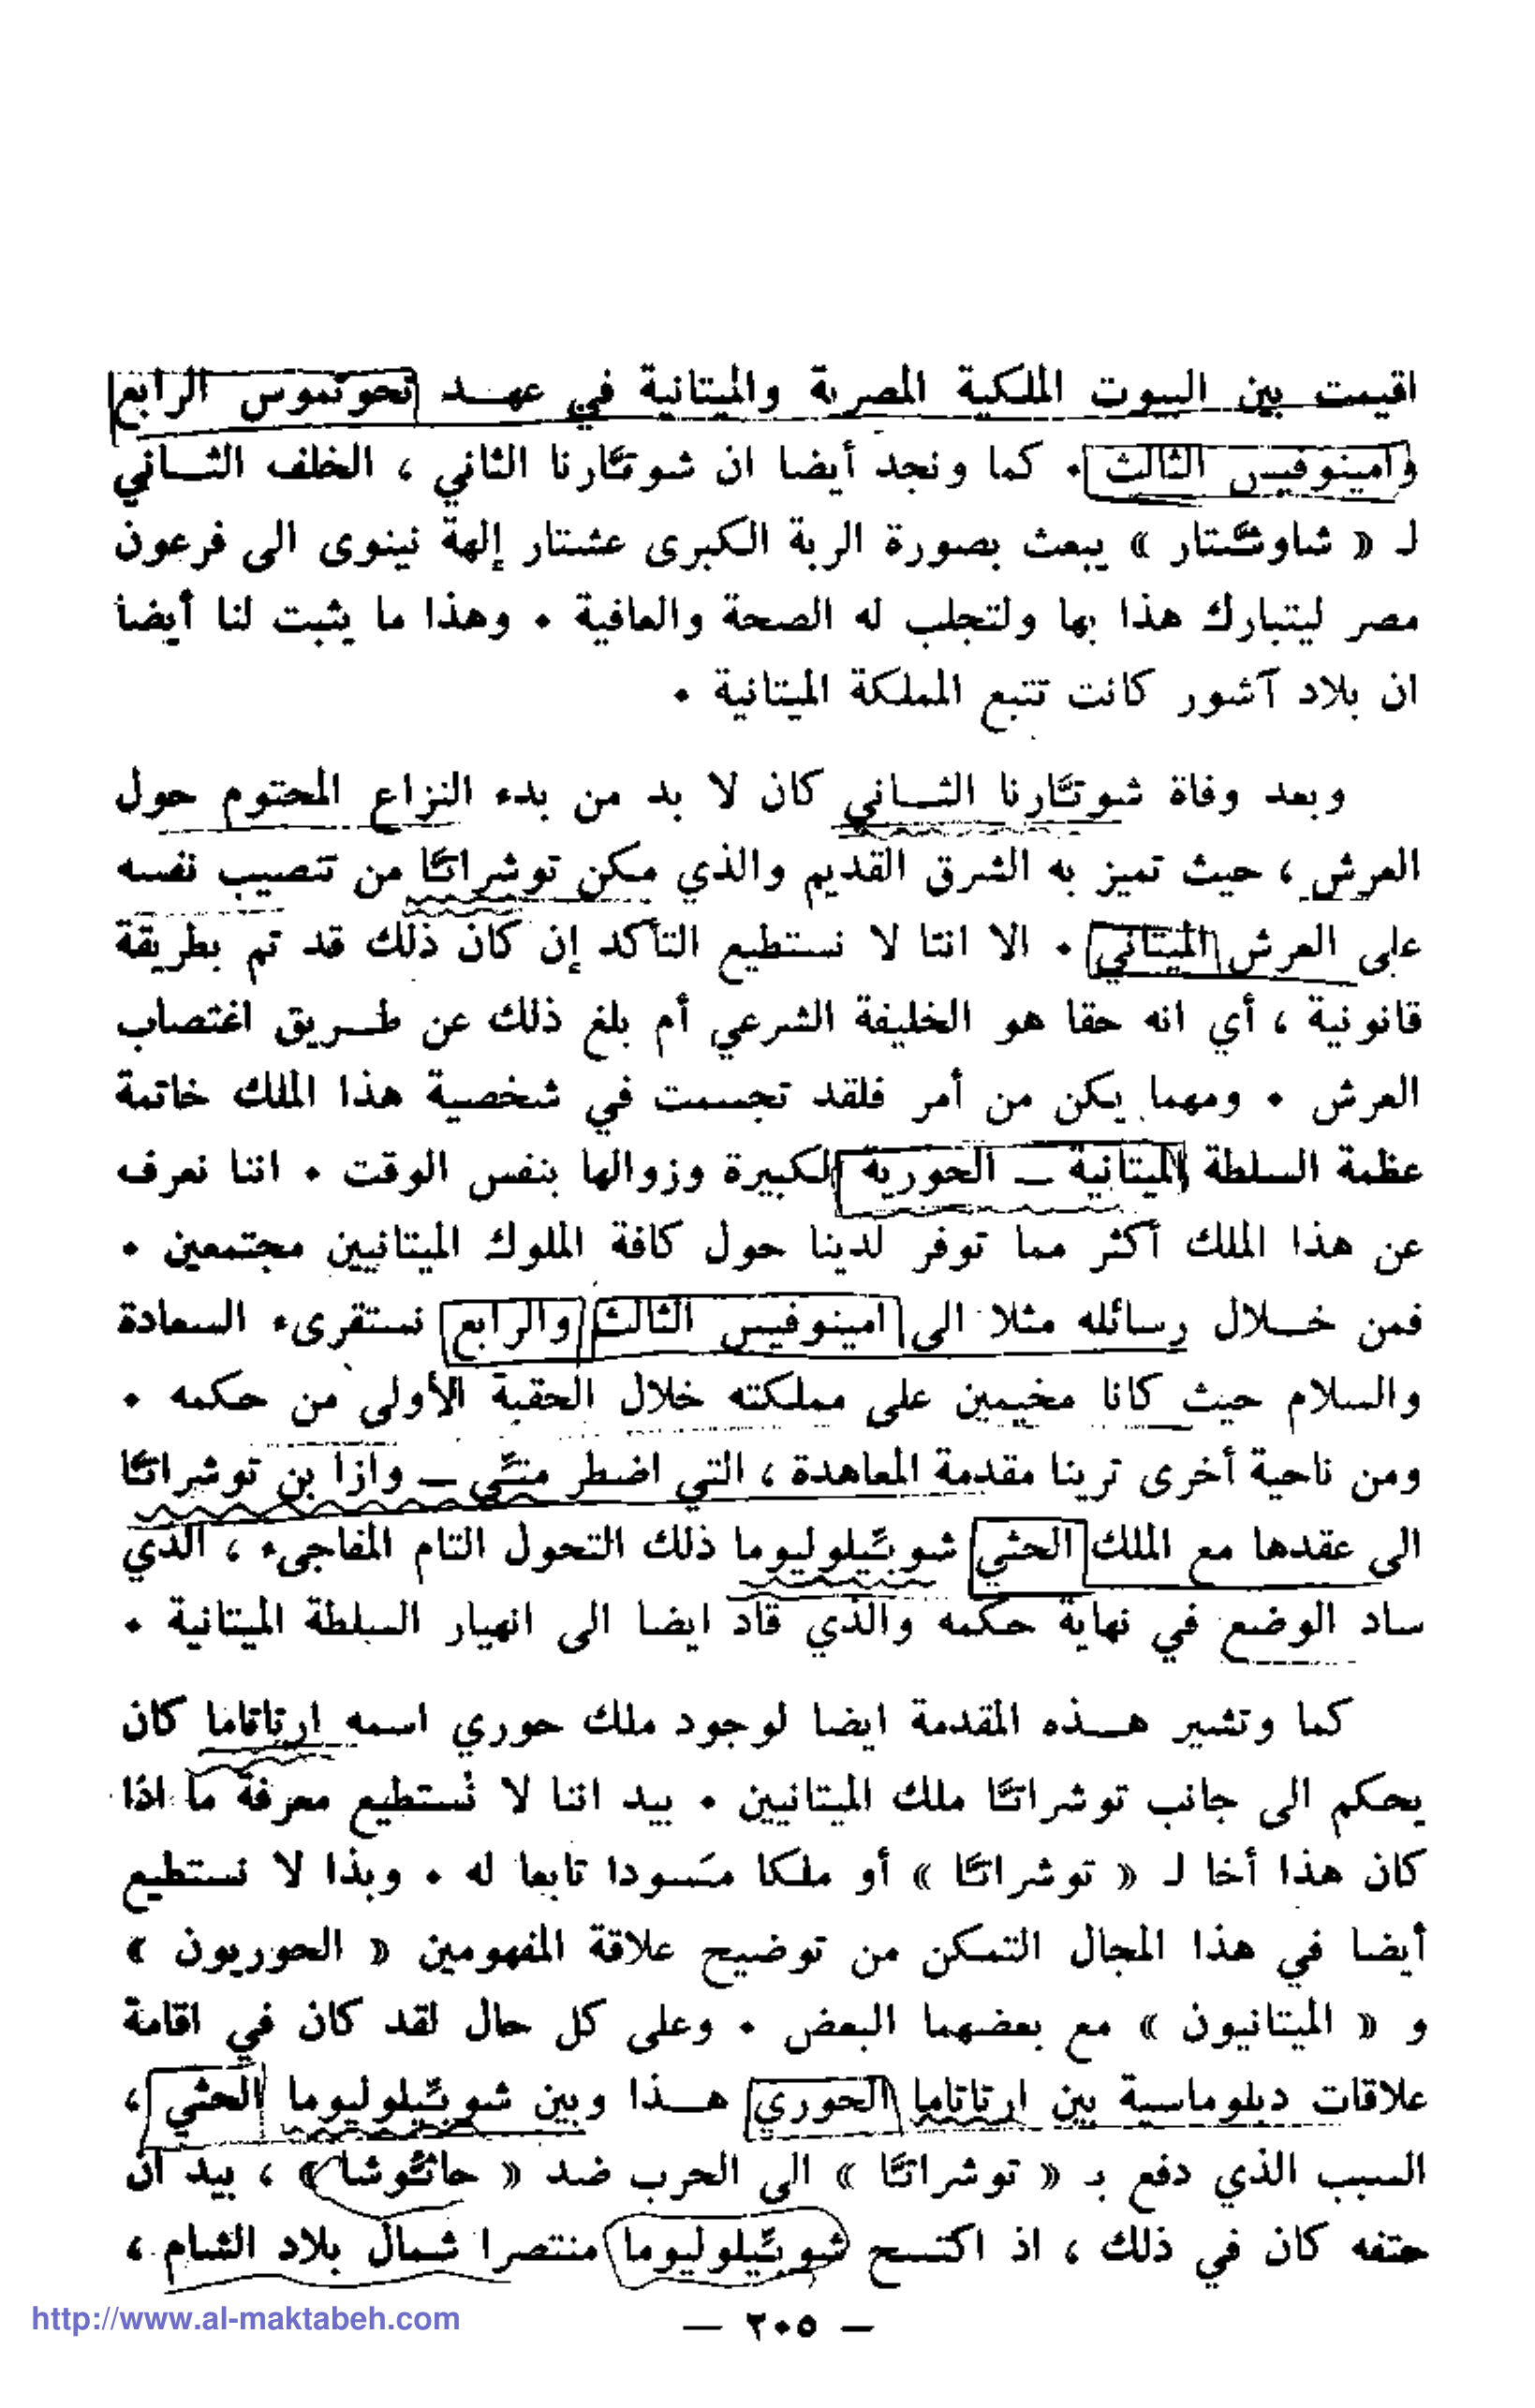 اقيمت بين البيوت الملكية المصرية والميتانية في عهـد تحوتموس الرابع
وامينوفيس الثالث. كما ونجد أيضا ان شوتّارنا الثاني ، الخلف الثـاني
لـ « شاوشّتار » يبعث بصورة الربة الكبرى عشتار إلهة نينوى الى فرعون
مصر ليتبارك هذا بها ولتجلب له الصحة والعافية . وهذا ما يثبت لنا أيضا
ان بلاد آشور كانت تتبع المملكة الميتانية .
وبعد وفاة شوتّارنا الثـاني كان لا بد من بدء النزاع المحتوم حول
العرش ، حيث تميز به الشرق القديم والذي مكن توشراتّا من تنصيب نفسه
على العرش الميتاني . الا اننا لا نستطيع التأكد إن كان ذلك قد تم بطريقة
قانونية ، أي انه حقا هو الخليفة الشرعي أم بلغ ذلك عن طـريق اغتصاب
العرش . ومهما يكن من أمر فلقد تجسمت في شخصية هذا الملك خاتمة
عظمة السلطة الميتانية ـ الحورية الكبيرة وزوالها بنفس الوقت . اننا نعرف
عن هذا الملك أكثر مما توفر لدينا حول كافة الملوك الميتانيين مجتمعين .
فمن خـلال رسائله مثلا الى امينوفيس الثالث والرابع نستقرىء السعادة
والسلام حيث كانا مخيمين على مملكته خلال الحقبة الأولى من حكمه .
ومن ناحية أخرى ترينا مقدمة المعاهدة ، التي اضطر متّي ـ وازا بن توشراتّا
الى عقدها مع الملك الحثي شوبّيلوليوما ذلك التحول التام المفاجىء ، الذي
ساد الوضع في نهاية حكمه والذي قاد ايضا الى انهيار السلطة الميتانية .
كما وتشير هـذه المقدمة ايضا لوجود ملك حوري اسمه ارتاتاما كان
يحكم الى جانب توشراتّا ملك الميتانيين . بيد اننا لا نستطيع معرفة ما اذا
كان هذا أخا لـ « توشراتّا » أو ملكا مسودا تابعا له . وبذا لا نستطيع
أيضا في هذا المجال التمكن من توضيح علاقة المفهومين « الحوريون »
و « الميتانيون » مع بعضهما البعض . وعلى كل حال لقد كان في اقامة
علاقات دبلوماسية بين ارتاتاما الحوري هـذا وبين شوبّيلوليوما الحثي ،
السبب الذي دفع بـ « توشراتّا » الى الحرب ضد « حاتّوشا » ، بيد ان
حتفه كان في ذلك ، اذ اكتسح شوبّيلوليوما منتصرا شمال بلاد الشام ،
— ٢٠٥ —
http://www.al-maktabeh.com